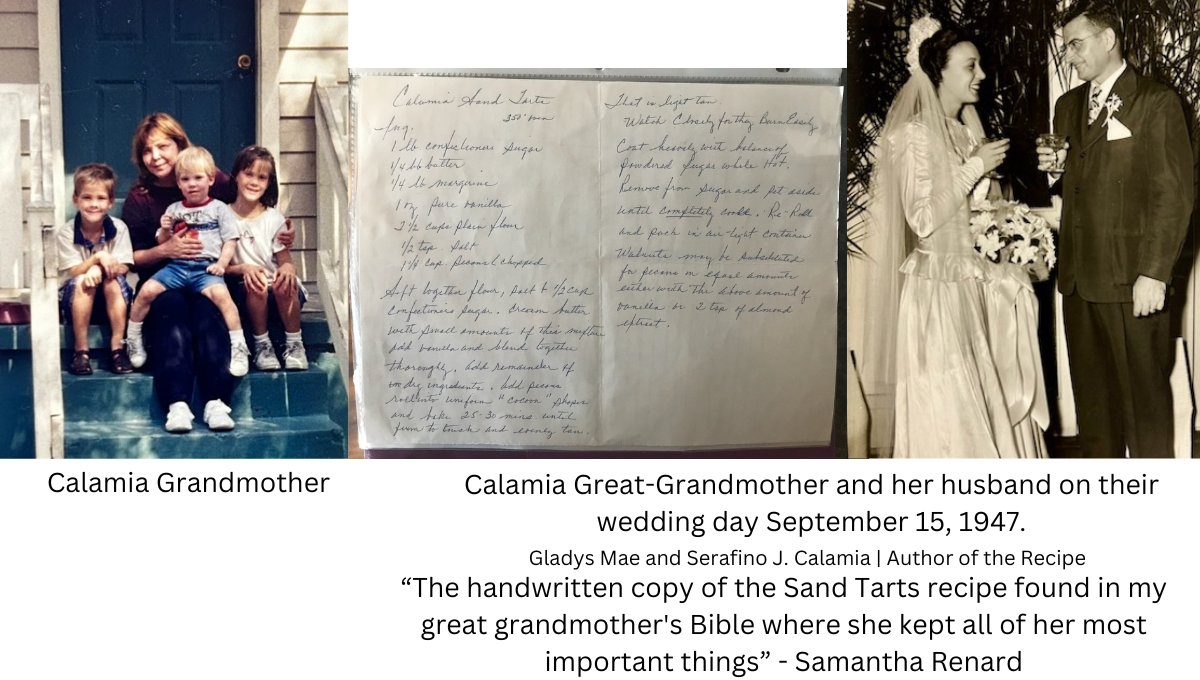 Calamia Sand Tarts
350° oven
Ing.
1 lb confectioners sugar
1/4 lb butter
1/4 lb margarine
1 oz. pure vanilla
2 1/2 cups plain flour
1/2 tsp. salt
1 1/4 cup pecans chopped
Sift together flour, salt & 1/2 cup
confectioners sugar. Cream butter
with small amounts of this mixture
add vanilla and blend together
thoroughly. Add remainder of
dry ingredients. Add pecans
roll into uniform "cocoon" shapes
and bake 25-30 mins until
firm to touch and evenly tan.
That is light tan.
Watch Closely for they Burn Easily
Coat heavily with balance of
Powdered Sugar while Hot.
Remove from sugar and set aside
until completely cool. Re-Roll
and pack in air-tight container
Walnuts may be substituted
for pecans in equal amounts
either with the above amount of
vanilla or 2 tsp of almond
extract.
Calamia Grandmother
Calamia Great-Grandmother and her husband on their
wedding day September 15, 1947.
Gladys Mae and Serafino J. Calamia | Author of the Recipe
“The handwritten copy of the Sand Tarts recipe found in my
great grandmother's Bible where she kept all of her most
important things” - Samantha Renard